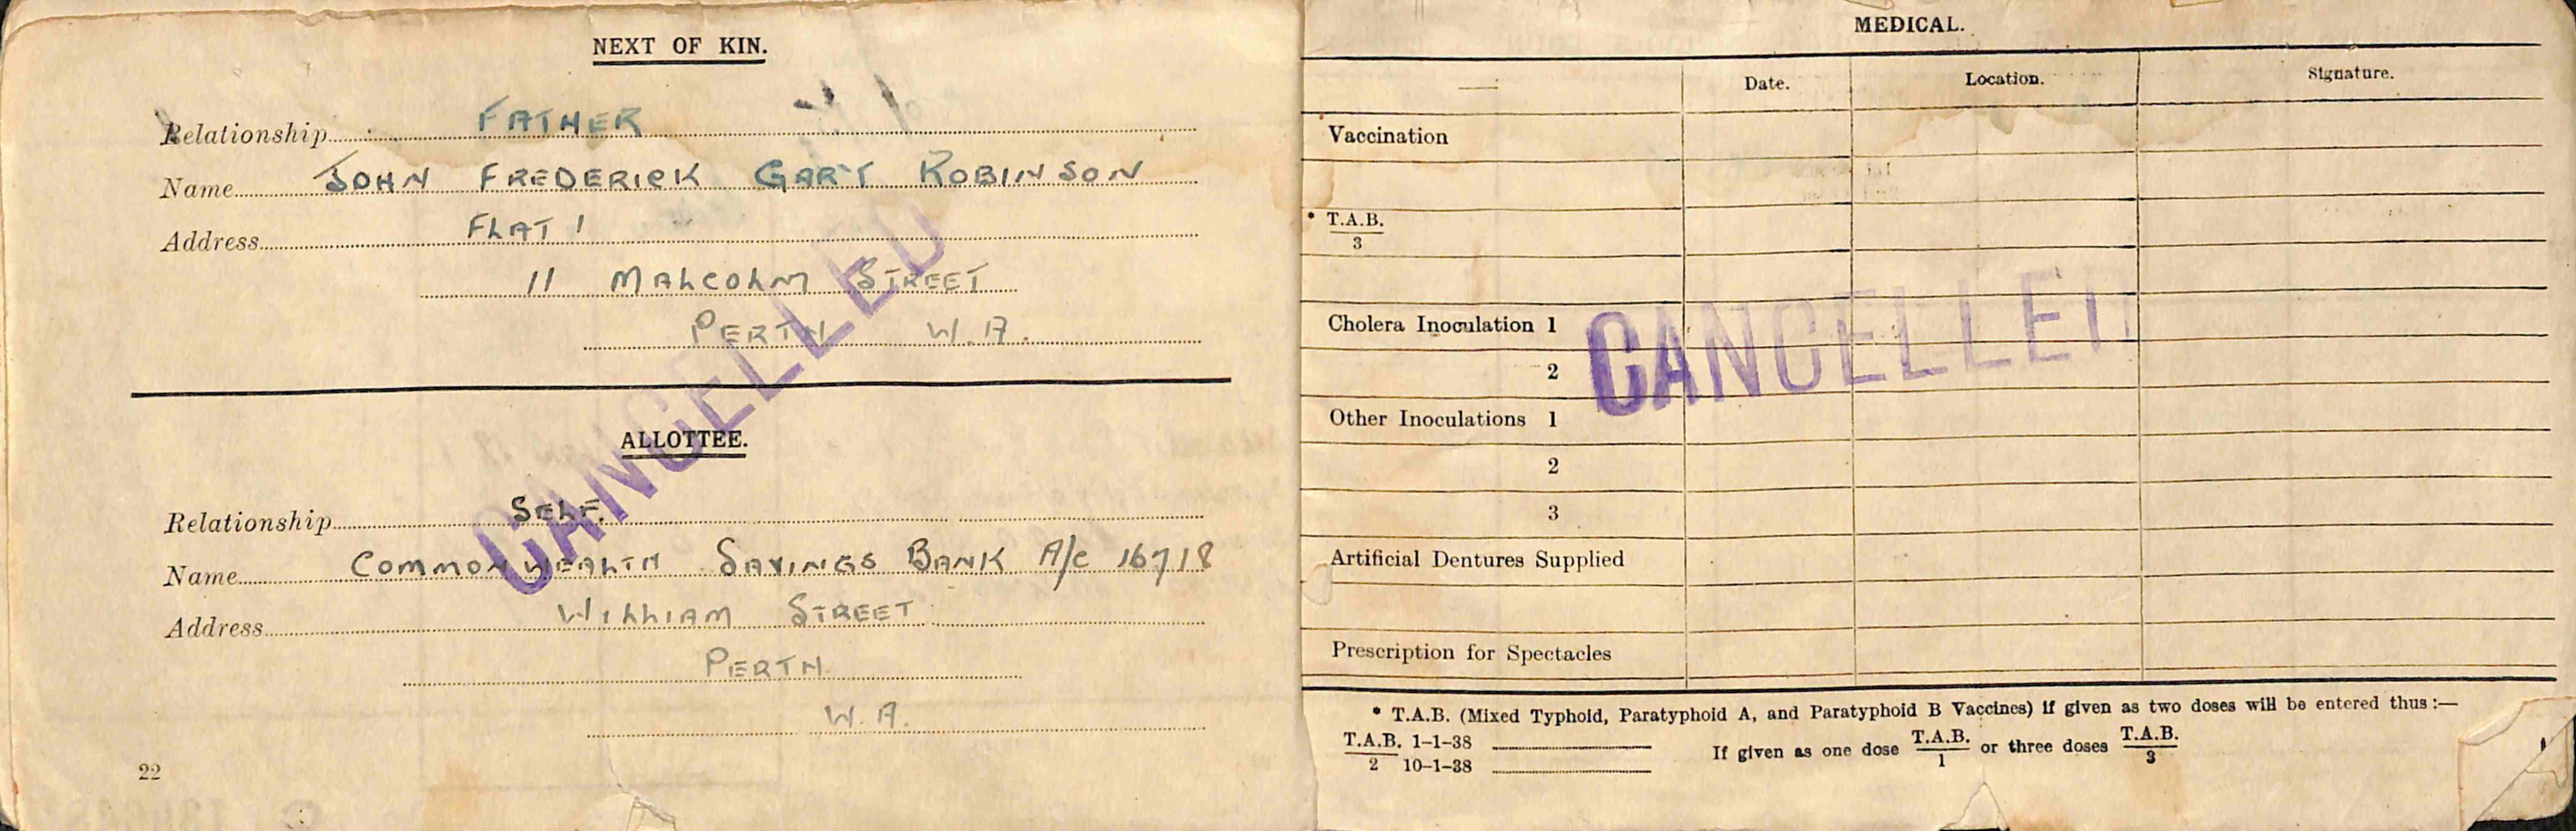 NEXT OF KIN.
Relationship FATHER
Name JOHN FREDERICK GARY ROBINSON
Address FLAT 1
11 MALCOLM STREET
PERTH W.A.
ALLOTTEE.
Relationship SELF.
Name COMMONWEALTH SAVINGS BANK A/c 16718
Address WILLIAM STREET
PERTH
W.A.
22
CANCELLED
MEDICAL.
Date. Location. Signature.
Vaccination
* T.A.B.
3
Cholera Inoculation 1
2
Other Inoculations 1
2
3
Artificial Dentures Supplied
Prescription for Spectacles
CANCELLED
* T.A.B. (Mixed Typhoid, Paratyphoid A, and Paratyphoid B Vaccines) if given as two doses will be entered thus:—
T.A.B. 1-1-38 If given as one dose T.A.B. or three doses T.A.B.
2 10-1-38 1 3